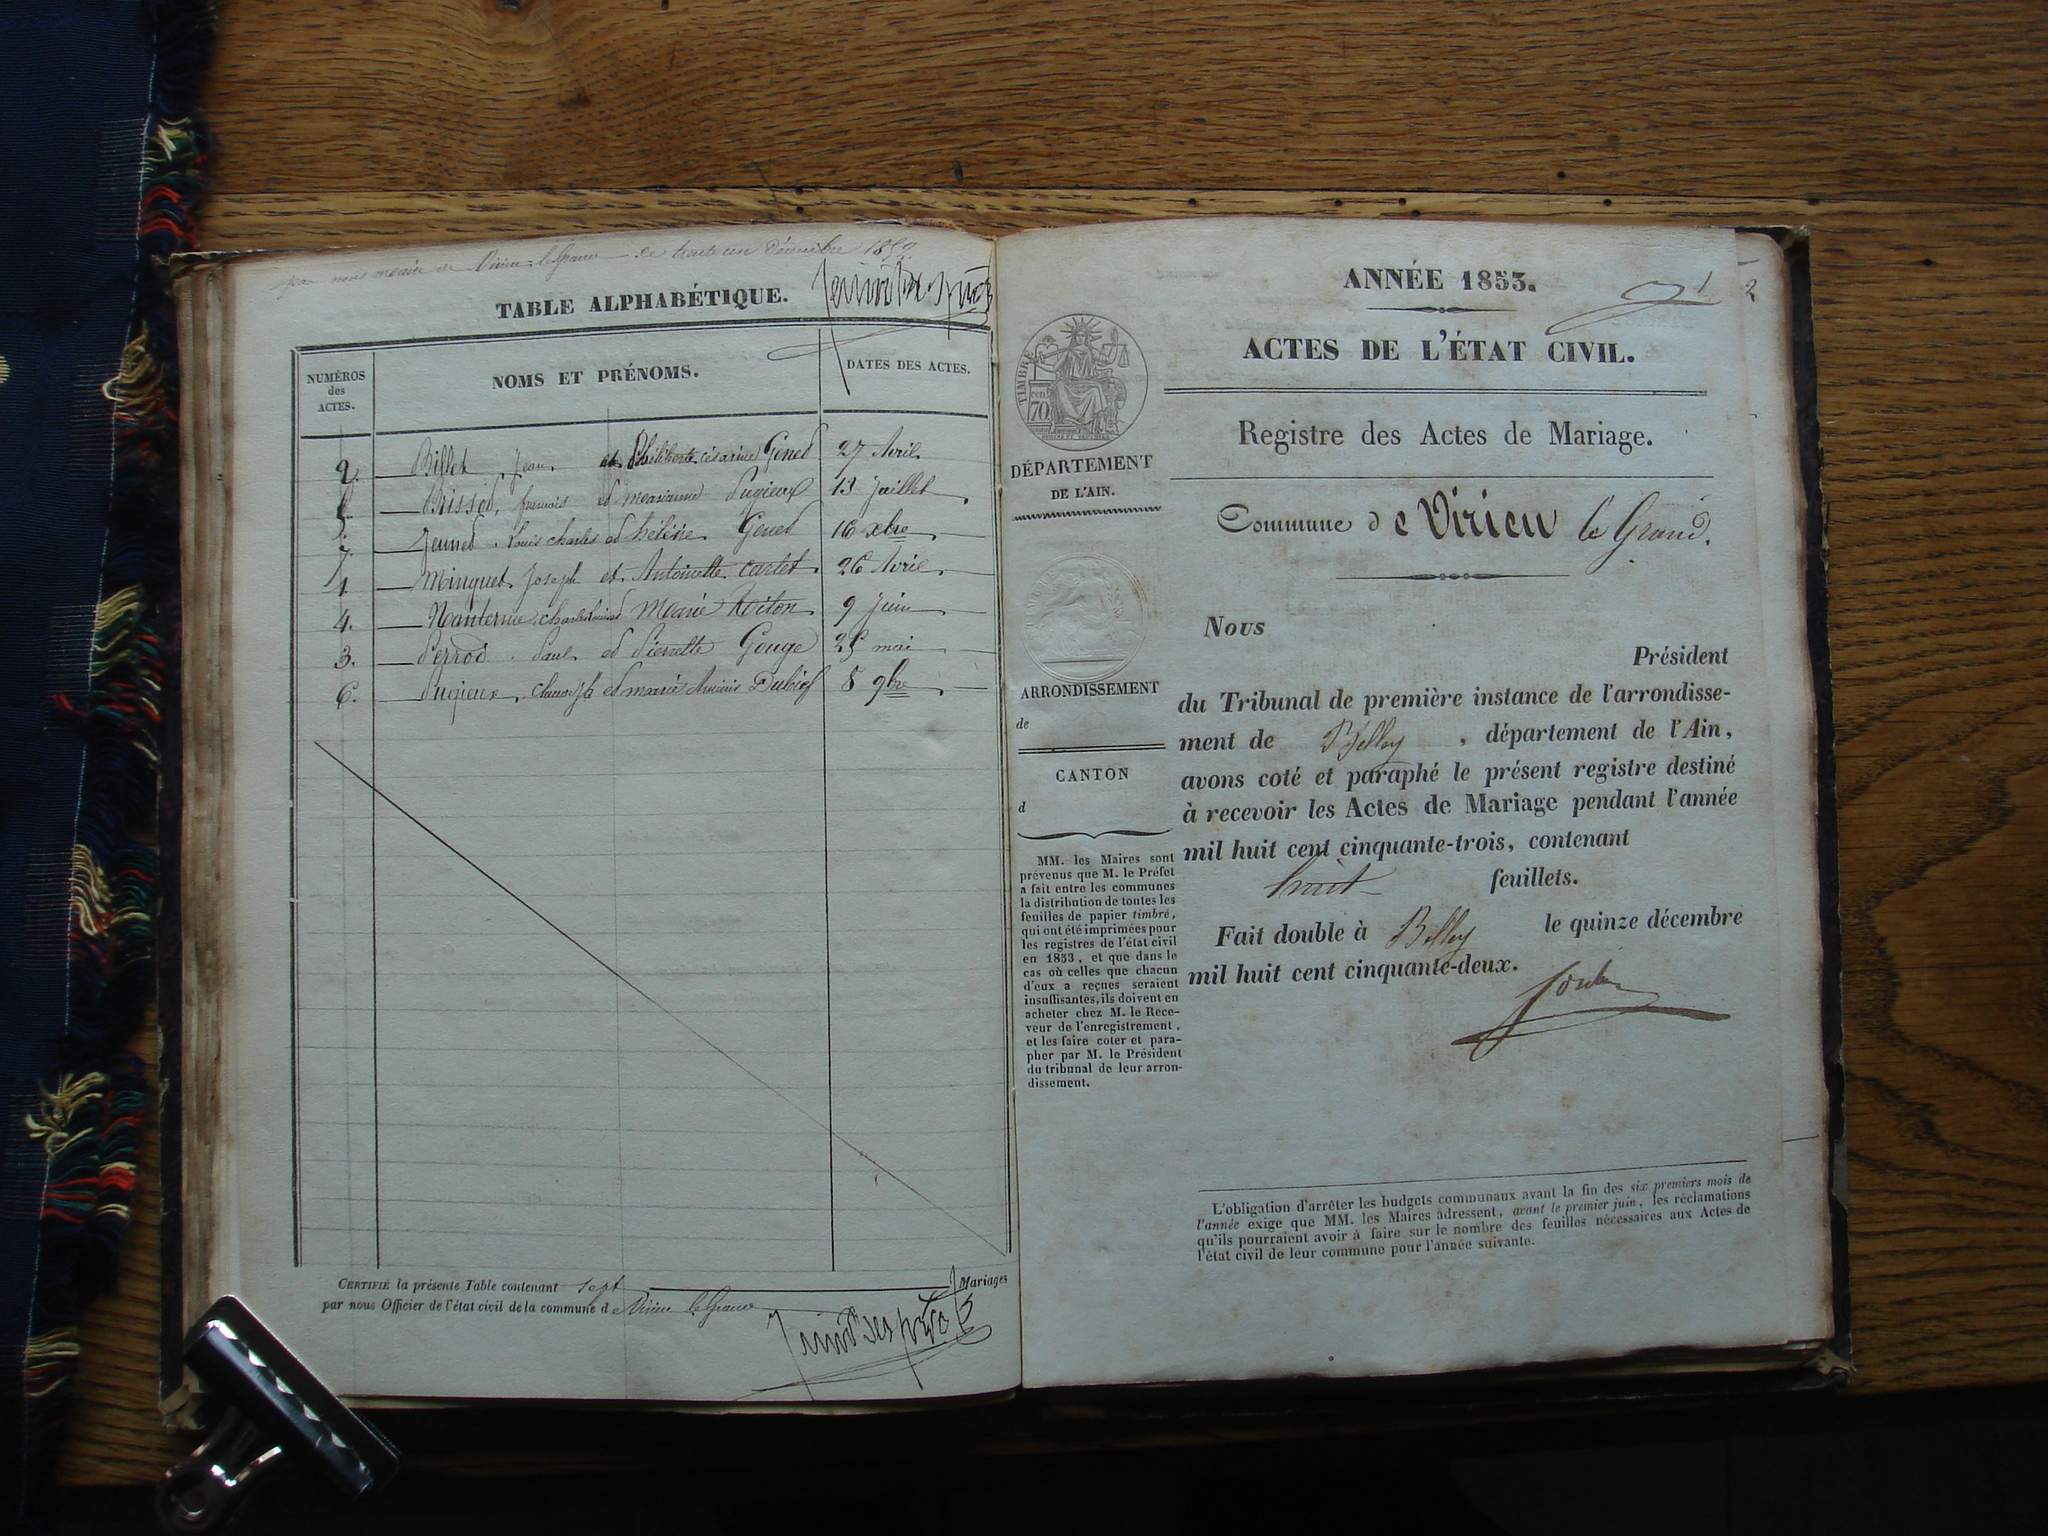 par nous maire de Virieu-le-Grand le trente un Décembre 1852
TABLE ALPHABÉTIQUE.
NUMÉROS
des
ACTES.
NOMS ET PRÉNOMS.
DATES DES ACTES.
2. Billet Jean et Philiberte césarine Gened 27 Avril
françois et marianne Pugieux 13 Juillet
7. Jeuned Louis charles et hélène Gened 16 xbre
1. Minguet Joseph et Antoinette Cartet 26 Avril
4. Nanterme Marie 9 Juin
3. Perrod Paul et Pierrette Gouge 25 mai
6. Pugieux et marie Dubief 8 9bre
CERTIFIÉ la présente Table contenant sept Mariages
par nous Officier de l'état civil de la commune de Virieu le Grand
ANNÉE 1853.
1
2
ACTES DE L'ÉTAT CIVIL.
Registre des Actes de Mariage.
Commune de Virieu le Grand.
TIMBRE
cen.
70
DÉPARTEMENT
DE L'AIN.
ARRONDISSEMENT
de
CANTON
d
MM. les Maires sont
prévenus que M. le Préfet
a fait entre les communes
la distribution de toutes les
feuilles de papier timbré,
qui ont été imprimées pour
les registres de l'état civil
en 1853, et que dans le
cas où celles que chacun
d'eux a reçues seraient
insuffisantes, ils doivent en
acheter chez M. le Rece-
veur de l'enregistrement,
et les faire coter et para-
pher par M. le Président
du tribunal de leur arron-
dissement.
Nous
Président
du Tribunal de première instance de l'arrondisse-
ment de Belley, département de l'Ain,
avons coté et paraphé le présent registre destiné
à recevoir les Actes de Mariage pendant l'année
mil huit cent cinquante-trois, contenant
huit feuillets.
Fait double à Belley le quinze décembre
mil huit cent cinquante-deux.
L'obligation d'arrêter les budgets communaux avant la fin des six premiers mois de
l'année exige que MM. les Maires adressent, avant le premier juin, les réclamations
qu'ils pourraient avoir à faire sur le nombre des feuilles nécessaires aux Actes de
l'état civil de leur commune pour l'année suivante.